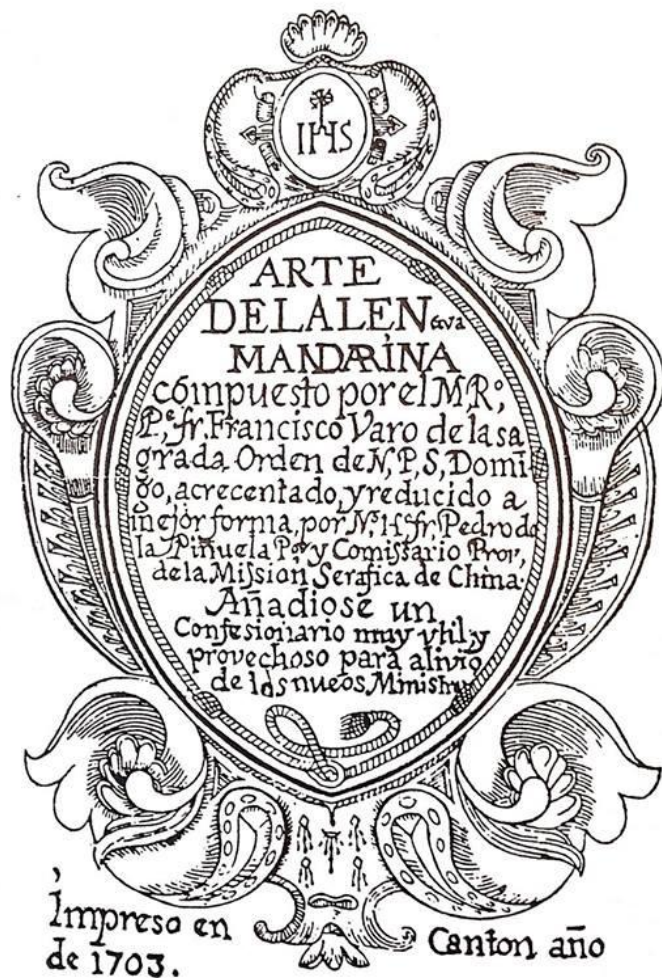 IHS
ARTE
DELALENgua
MANDARINA
cómpuesto por el M,R°;
P,e fr. Francisco Varo de la sa
grada Orden de N, P, S, Domi-
go, acrecentado, y reducido a
mejor forma, por N° H° fr, Pedro de
la Piñuela Por y Comissario Prov,
de la Mission Serafica de China.
Añadiose un
Confesionario muy vtil, y
provechoso para alivio
de los nueos Ministros
Impreso en Canton año
de 1703.